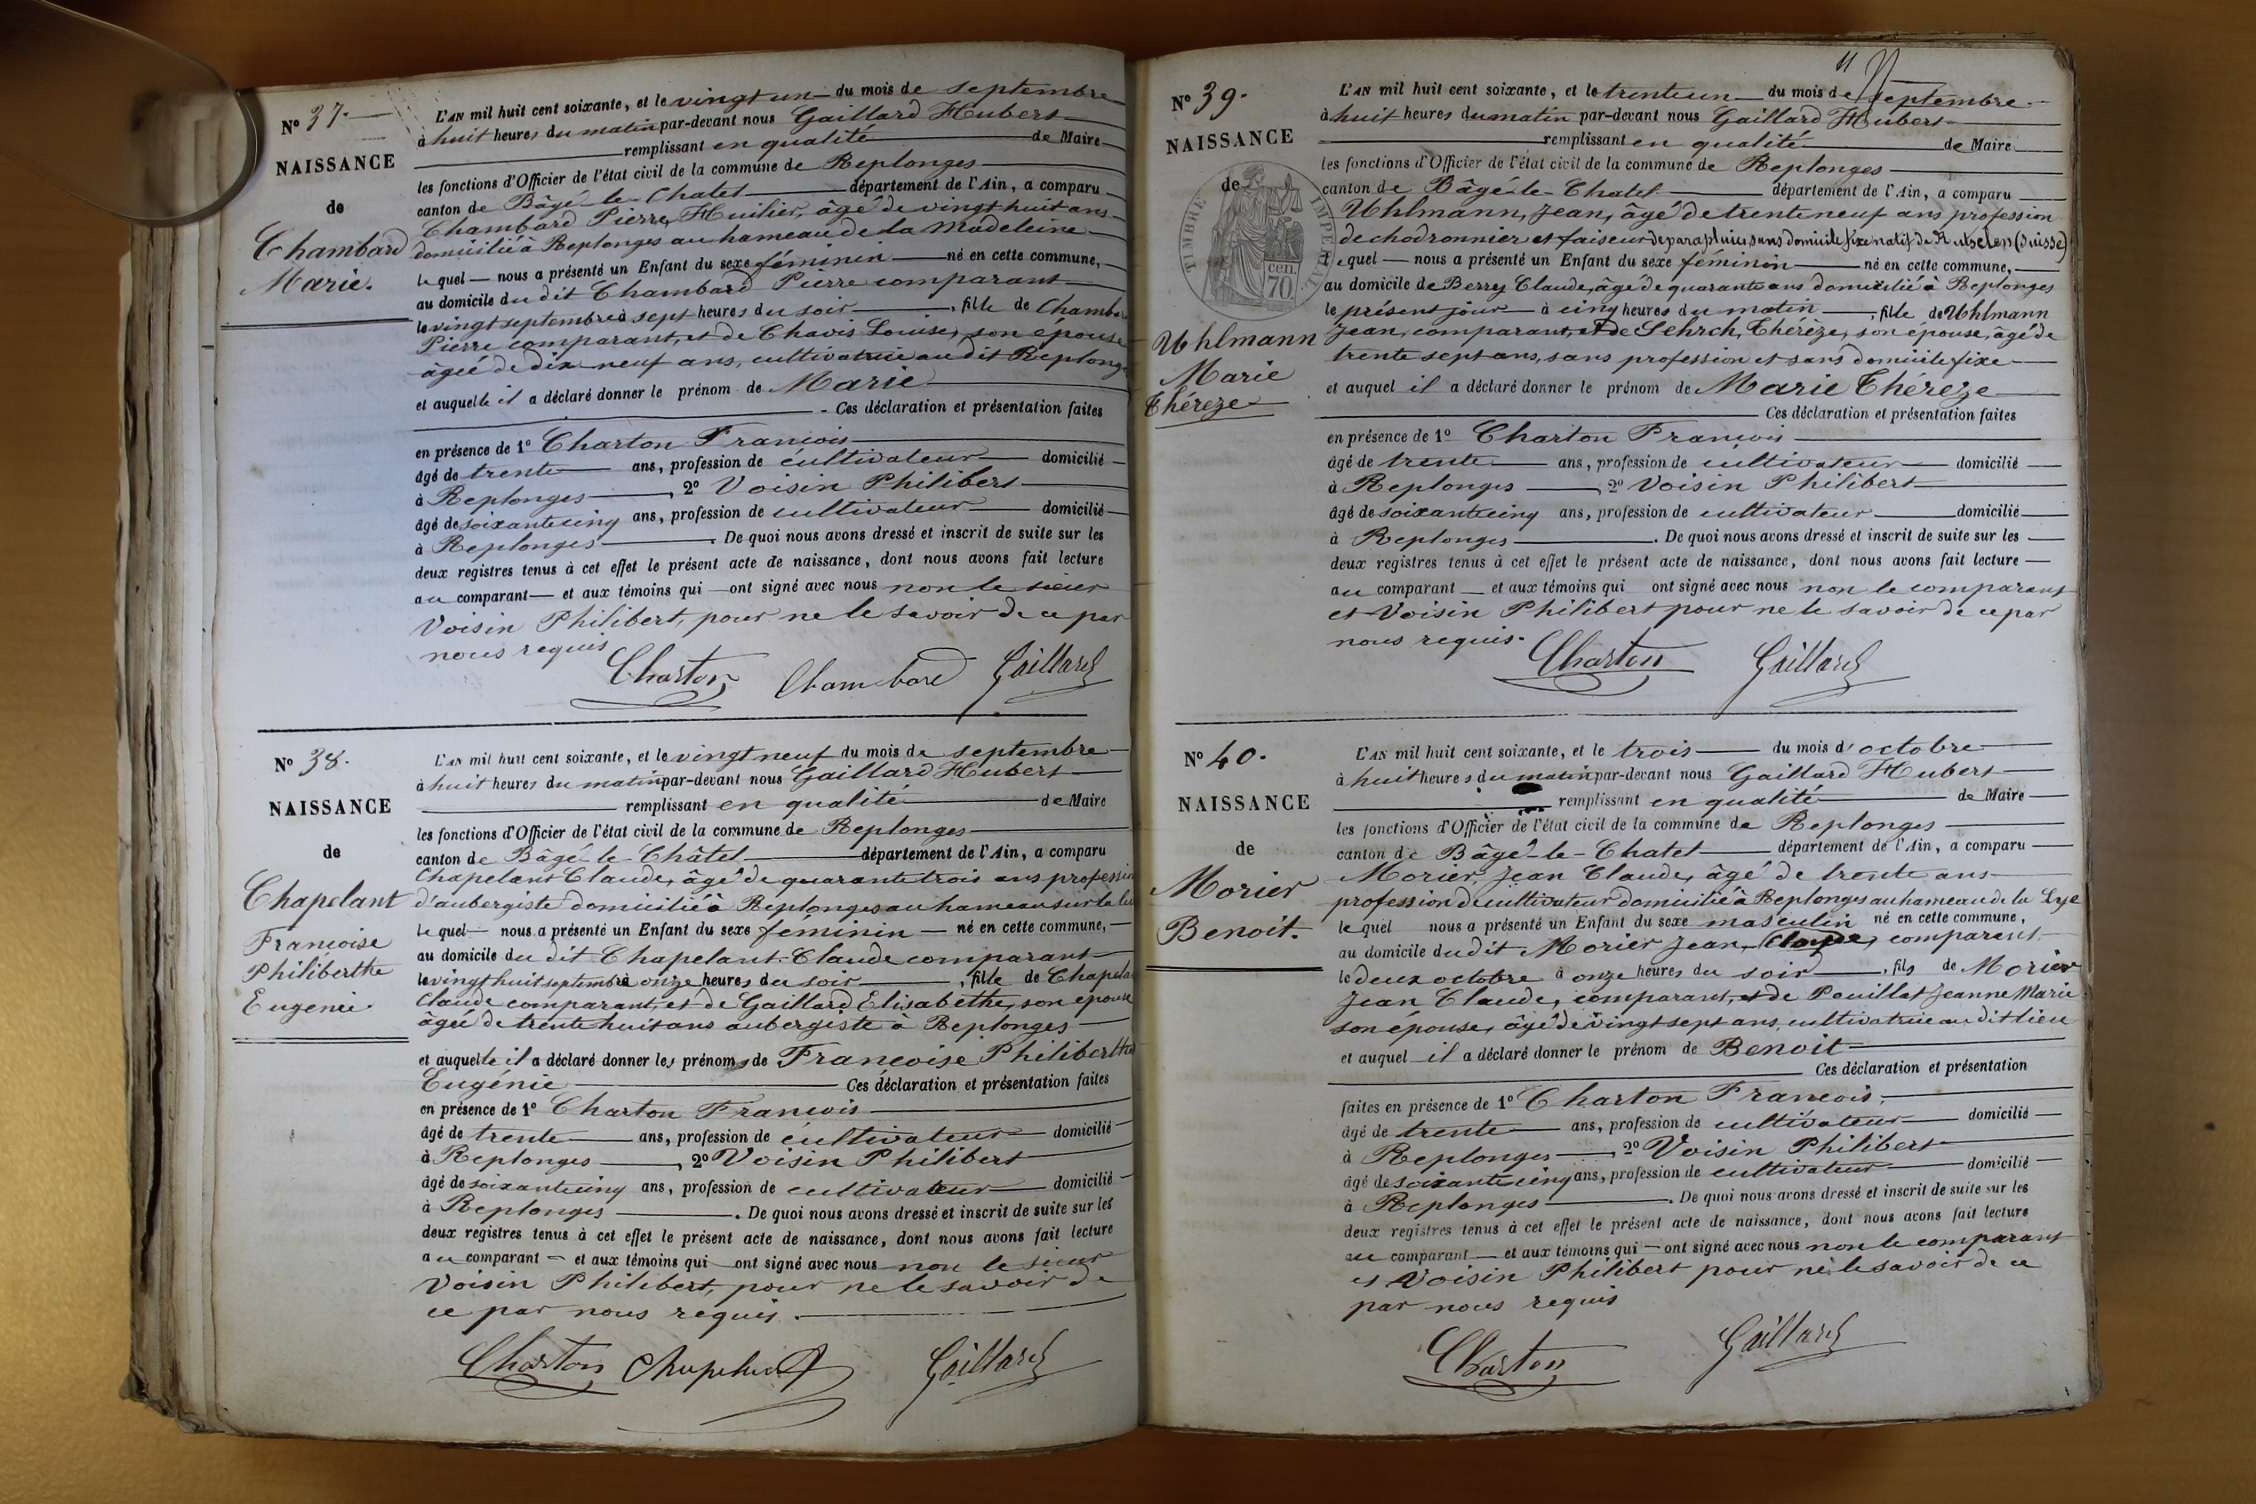 N° 37.
NAISSANCE
de
Chambard
Marie.
L'AN mil huit cent soixante, et le vingt un du mois de septembre
à huit heures du matin par-devant nous Gaillard Hubert
remplissant en qualité de Maire
les fonctions d'Officier de l'état civil de la commune de Replonges
canton de Bâgé-le-Chatel département de l'Ain, a comparu
Chambard Pierre, Huilier, âgé de vingt huit ans
domicilié à Replonges au hameau de la Madeleine
le quel nous a présenté un Enfant du sexe féminin né en cette commune,
au domicile du dit Chambard Pierre comparant
le vingt septembre à sept heures du soir, fille de Chambard
Pierre comparant, et de Chavis Louise, son épouse
âgée de dix-neuf ans, cultivatrice au dit Replonges
et auquelle il a déclaré donner le prénom de Marie
Ces déclaration et présentation faites
en présence de 1° Charton François
âgé de trente ans, profession de cultivateur domicilié
à Replonges, 2° Voisin Philibert
âgé de soixante cinq ans, profession de cultivateur domicilié
à Replonges. De quoi nous avons dressé et inscrit de suite sur les
deux registres tenus à cet effet le présent acte de naissance, dont nous avons fait lecture
au comparant et aux témoins qui ont signé avec nous non le sieur
Voisin Philibert, pour ne le savoir de ce par
nous requis
Charton Chambard Gaillard
N° 38.
NAISSANCE
de
Chapelant
Françoise
Philiberthe
Eugénie.
L'AN mil huit cent soixante, et le vingt neuf du mois de septembre
à huit heures du matin par-devant nous Gaillard Hubert
remplissant en qualité de Maire
les fonctions d'Officier de l'état civil de la commune de Replonges
canton de Bâgé-le-Châtel département de l'Ain, a comparu
Chapelant Claude, âgé de quarante trois ans profession
d'aubergiste domicilié à Replonges au hameau sur la
le quel nous a présenté un Enfant du sexe féminin né en cette commune,
au domicile du dit Chapelant Claude comparant
le vingt huit septembre à onze heures du soir, fille de Chapelant
Claude comparant, et de Gaillard Elisabethe, son épouse
âgée de trente huit ans aubergiste à Replonges
et auquelle il a déclaré donner les prénoms de Françoise Philiberthe
Eugénie Ces déclaration et présentation faites
en présence de 1° Charton François
âgé de trente ans, profession de cultivateur domicilié
à Replonges, 2° Voisin Philibert
âgé de soixante cinq ans, profession de cultivateur domicilié
à Replonges. De quoi nous avons dressé et inscrit de suite sur les
deux registres tenus à cet effet le présent acte de naissance, dont nous avons fait lecture
au comparant et aux témoins qui ont signé avec nous non le sieur
Voisin Philibert, pour ne le savoir de
ce par nous requis.
Charton Chapelant Gaillard
11
N° 39.
NAISSANCE
de
TIMBRE IMPERIAL
70 cen.
Uhlmann
Marie
Thérèze
L'AN mil huit cent soixante, et le trente un du mois de septembre
à huit heures du matin par-devant nous Gaillard Hubert
remplissant en qualité de Maire
les fonctions d'Officier de l'état civil de la commune de Replonges
canton de Bâgé-le-Chatel département de l'Ain, a comparu
Uhlmann, Jean, âgé de trente neuf ans profession
de chodronnier et faiseur de parapluies, sans domicile fixe natif de (Suisse)
le quel nous a présenté un Enfant du sexe féminin né en cette commune,
au domicile de Berrey Claude, âgé de quarante ans domicilié à Replonges
le présent jour à cinq heures du matin, fille de Uhlmann
Jean, comparant, et de Sehrch, Thérèze, son épouse, âgé de
trente sept ans, sans profession et sans domicile fixe
et auquel il a déclaré donner le prénom de Marie Thérèze
Ces déclaration et présentation faites
en présence de 1° Charton François
âgé de trente ans, profession de cultivateur domicilié
à Replonges, 2° Voisin Philibert
âgé de soixante cinq ans, profession de cultivateur domicilié
à Replonges. De quoi nous avons dressé et inscrit de suite sur les
deux registres tenus à cet effet le présent acte de naissance, dont nous avons fait lecture
au comparant et aux témoins qui ont signé avec nous non le comparant
et Voisin Philibert pour ne le savoir de ce par
nous requis.
Charton Gaillard
N° 40.
NAISSANCE
de
Morier
Benoit.
L'AN mil huit cent soixante, et le trois du mois d'octobre
à huit heures du matin par-devant nous Gaillard Hubert
remplissant en qualité de Maire
les fonctions d'Officier de l'état civil de la commune de Replonges
canton de Bâgé-le-Chatel département de l'Ain, a comparu
Morier, Jean Claude, âgé de trente ans
profession de cultivateur domicilié à Replonges au hameau de la Lye
le quel nous a présenté un Enfant du sexe masculin né en cette commune,
au domicile du dit Morier Jean, Claude, comparant
le deux octobre à onze heures du soir, fils de Morier
Jean Claude, comparant, et de Pouillat Jeanne Marie
son épouse, âgé de vingt sept ans, cultivatrice au dit lieu
et auquel il a déclaré donner le prénom de Benoit
Ces déclaration et présentation
faites en présence de 1° Charton François,
âgé de trente ans, profession de cultivateur domicilié
à Replonges, 2° Voisin Philibert
âgé de soixante cinq ans, profession de cultivateur domicilié
à Replonges. De quoi nous avons dressé et inscrit de suite sur les
deux registres tenus à cet effet le présent acte de naissance, dont nous avons fait lecture
au comparant et aux témoins qui ont signé avec nous non le comparant
et Voisin Philibert pour ne le savoir de ce
par nous requis
Charton Gaillard